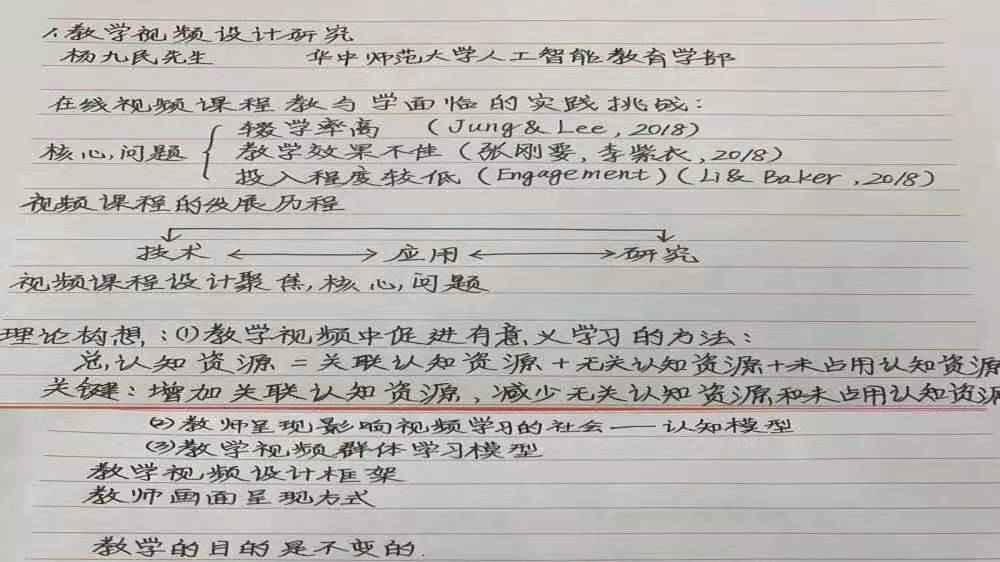 1.教学视频设计研究
杨九民先生 华中师范大学人工智能教育学部
在线视频课程教与学面临的实践挑战:
核心问题 { 辍学率高 (Jung & Lee, 2018)
教学效果不佳 (张刚要, 李紫衣, 2018)
投入程度较低 (Engagement) (Li & Baker, 2018)
视频课程的发展历程
技术 ⟷ 应用 ⟷ 研究
视频课程设计聚焦核心问题
理论构想:(1)教学视频中促进有意义学习的方法:
总认知资源=关联认知资源+无关认知资源+未占用认知资源
关键:增加关联认知资源,减少无关认知资源和未占用认知资源
(2)教师呈现影响视频学习的社会——认知模型
(3)教学视频群体学习模型
教学视频设计框架
教师画面呈现方式
教学的目的是不变的.